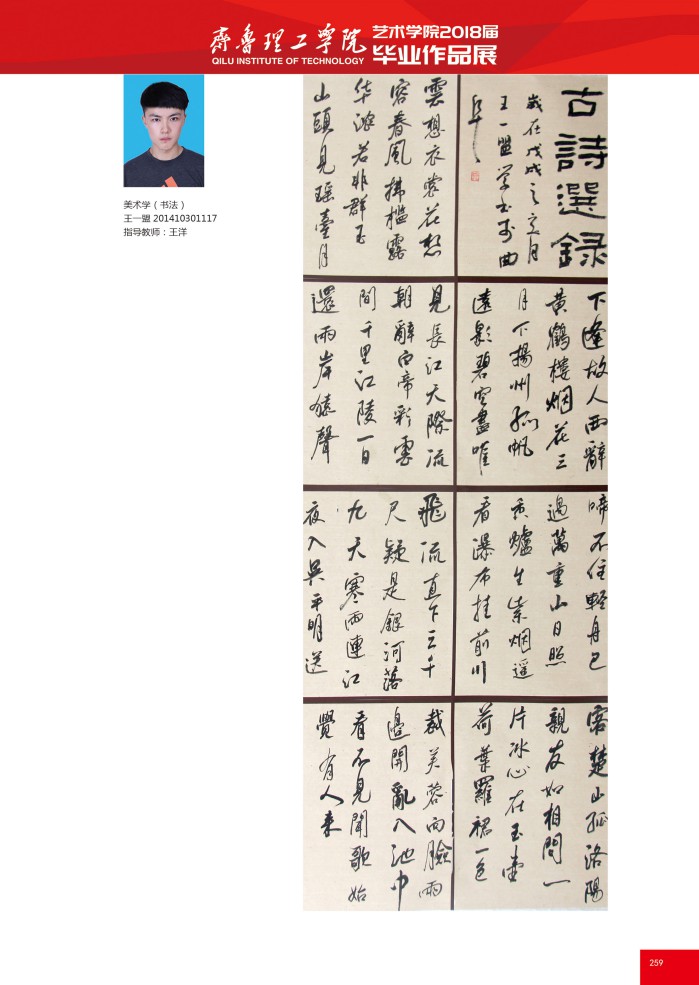 齊魯理工學院
QILU INSTITUTE OF TECHNOLOGY
艺术学院2018届
毕业作品展
美术学（书法）
王一盟 201410301117
指导教师：王洋
古詩選録
歲在戊戌之月
王一盟学書於曲
阜
雲想衣裳花想
容春風拂檻露
华浓若非群玉
山頭見瑶臺月
下逢故人西辭
黄鶴樓烟花三
月下揚州孤帆
遠影碧空盡唯
見長江天際流
朝辭白帝彩雲
間千里江陵一日
還兩岸猿聲
啼不住輕舟已
過萬重山日照
香爐生紫烟遥
看瀑布挂前川
飛流直下三千
尺疑是銀河落
九天寒雨連江
夜入吳平明送
客楚山孤洛陽
親友如相問一
片冰心在玉壺
荷葉羅裙一色
裁芙蓉向臉兩
邊開亂入池中
看不見聞歌始
覺有人来
259